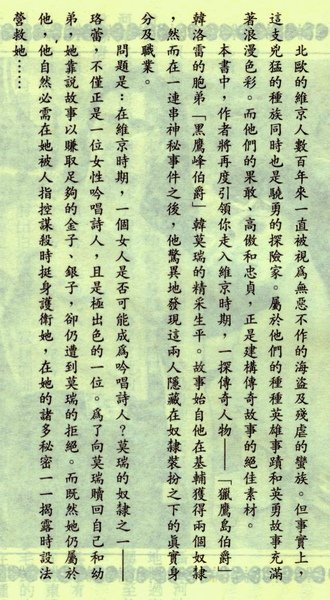 北歐的維京人數百年來一直被視為無惡不作的海盜及殘虐的蠻族。但事實上，
這支兇猛的種族同時也是驍勇的探險家。屬於他們的種種英雄事蹟和英勇故事充滿
著浪漫色彩。而他們的果敢、高傲和忠貞，正是建構傳奇故事的絕佳素材。
本書中，作者將再度引領你走入維京時期，一探傳奇人物——「獵鷹島伯爵」
韓洛雷的胞弟「黑鷹峰伯爵」韓莫瑞的精采生平。故事始自他在基輔獲得兩個奴隸
，然而在一連串神秘事件之後，他驚異地發現這兩人隱藏在奴隸裝扮之下的真實身
分及職業。
問題是：在維京時期，一個女人是否可能成為吟唱詩人？莫瑞的奴隸之一——
珞蕾，不僅正是一位女性吟唱詩人，且是極出色的一位。為了向莫瑞贖回自己和幼
弟，她靠說故事以賺取足夠的金子、銀子，卻仍遭到莫瑞的拒絕。而既然她仍屬於
他，他自然必需在她被人指控謀殺時挺身護衛她，在她的諸多秘密一一揭露時設法
營救她……